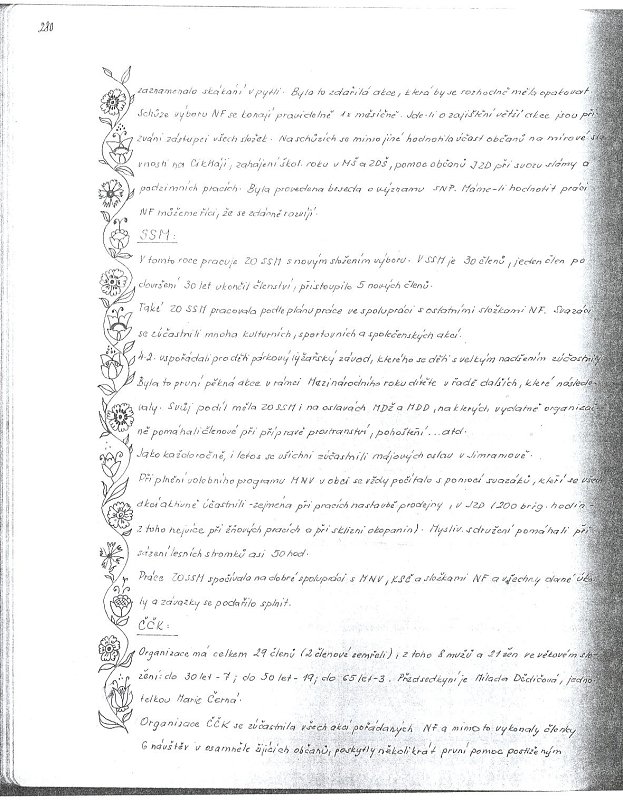 280
zaznamenalo skákání v pytli. Byla to zdařilá akce, která by se rozhodně měla opakovat.
Schůze výboru NF se konají pravidelně 1x měsíčně. Jde-li o zajištění větší akce jsou při
zváni zástupci všech složek. Na schůzích se mimo jiné hodnotila účast občanů na mírové
vnosti na Cikháji, zahájení škol. roku v MŠ a ZDŠ, pomoc občanů JZD při svozu slámy a
podzimních pracích. Byla provedena beseda o významu SNP. Máme-li hodnotit práci
NF můžeme říci, že se zdárně rozvíjí.
SSM:
V tomto roce pracuje ZO SSM s novým složením výboru. V SSM je 30 členů, jeden člen po
dovršení 30 let ukončil členství, přistoupilo 5 nových členů.
Také ZO SSM pracovala podle plánu práce ve spolupráci s ostatními složkami NF. Svazáci
se zúčastnili mnoha kulturních, sportovních a společenských akcí.
4.2. uspořádali pro děti párkový lyžařský závod, kterého se děti s velkým nadšením zúčastnily
Byla to první pěkná akce v rámci Mezinárodního roku dítěte v řadě dalších, které následo-
valy. Svůj podíl měla ZO SSM i na oslavách MDŽ a MDD, na kterých vydatně organizač
ně pomáhali členové při přípravě prostranství, pohoštění ... atd.
Jako každoročně, i letos se všichni zúčastnili májových oslav v Jimramově.
Při plnění volebního programu MNV v obci se vždy počítalo s pomocí svazáků, kteří se všech
akcí aktivně účastnili - zejména při pracích na stavbě prodejny, v JZD (200 brig. hodin -
z toho nejvíce při žňových pracích a při sklizni okopanin). Mysliv. sdružení pomáhali při
sázení lesních stromků asi 50 hod.
Práce ZO SSM spočívala na dobré spolupráci s MNV, KSČ a složkami NF a všechny dané úko-
ly a závazky se podařilo splnit.
ČČK:
Organizace má celkem 29 členů (2 členové zemřeli); z toho 8 mužů a 21 žen ve věkovém slo
žení: do 30 let - 7; do 50 let - 19; do 65 let - 3. Předsedkyní je Milada Dědičová, jedna
telkou Marie Černá.
Organizace ČČK se zúčastnila všech akcí pořádaných NF a mimo to vykonaly členky
6 návštěv u osaměle žijících občanů, poskytly několikrát první pomoc postiženým